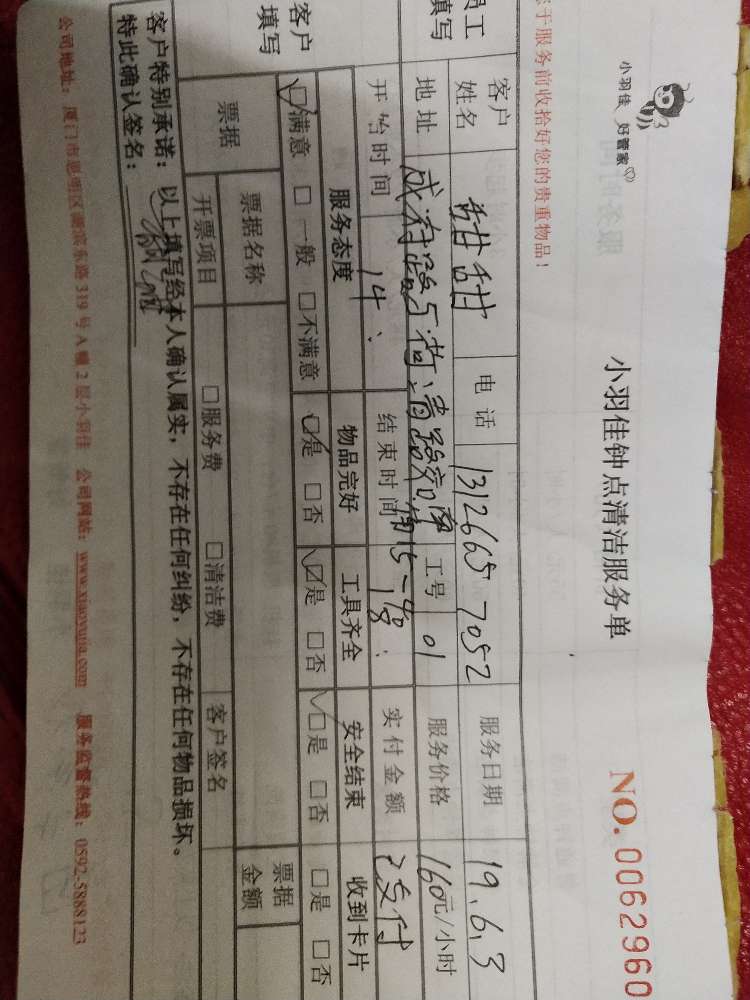 小羽佳 好管家
小羽佳钟点清洁服务单
NO.0062960
于服务前收拾好您的贵重物品!
员工填写
客户姓名 甜甜 电话 13126657052 服务日期 19.6.3
地址 成府路与荷清路交口 工号 01 服务价格 160元/小时
开始时间 14: 结束时间 18: 实付金额 已支付
客户填写
服务态度 物品完好 工具齐全 安全结束 收到卡片
☑满意 □一般 □不满意 ☑是 □否 ☑是 □否 ☑是 □否 □是 □否
票据 票据名称 票据金额
开票项目 □服务费 □清洁费 客户签名
客户特别承诺:以上填写经本人确认属实,不存在任何纠纷,不存在任何物品损坏。
特此确认签名:
公司地址:厦门市思明区湖滨东路319号A幢2层小羽佳 公司网站:www.xiaoyujia.com 服务监督热线:0592-5888123